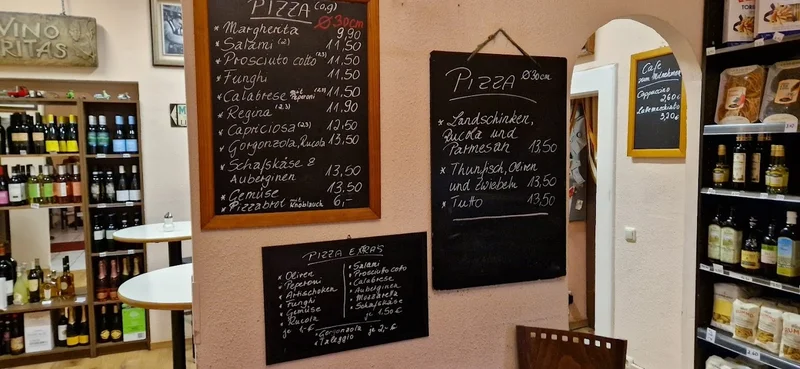 VINO
RITAS
PIZZA (a,g)
Ø 30cm
* Margherita 9,90
* Salami (2) 11,50
* Prosciuto cotto (2,3) 11,50
* Funghi 11,50
* Calabrese mit Peperoni 11,50
* Regina (2,3) 11,90
* Capriciosa (2,3) 12,50
* Gorgonzola, Rucola 13,50
* Schafskäse &
Auberginen 13,50
* Gemüse 13,50
* Pizzabrot mit Knoblauch 6,-
PIZZA Ø30cm
* Landschinken,
Rucola und
Parmesan 13,50
* Thunfisch, Oliven
und Zwiebeln 13,50
* Tutto 13,50
PIZZA EXTRAS
* Oliven
* Peperoni
* Artischoken
* Funghi
* Gemüse
* Rucola
je 1,-€
* Salami
* Prosciuto coto
* Calabrese
* Auberginen
* Mozzarella
* Schafskäse
je 1.50€
* Gorgonzola
* Taleggio je 2,-€
Cafe
zum Mitnehmen
Cappuccino
2,60€
Latte macchiato
3,20€